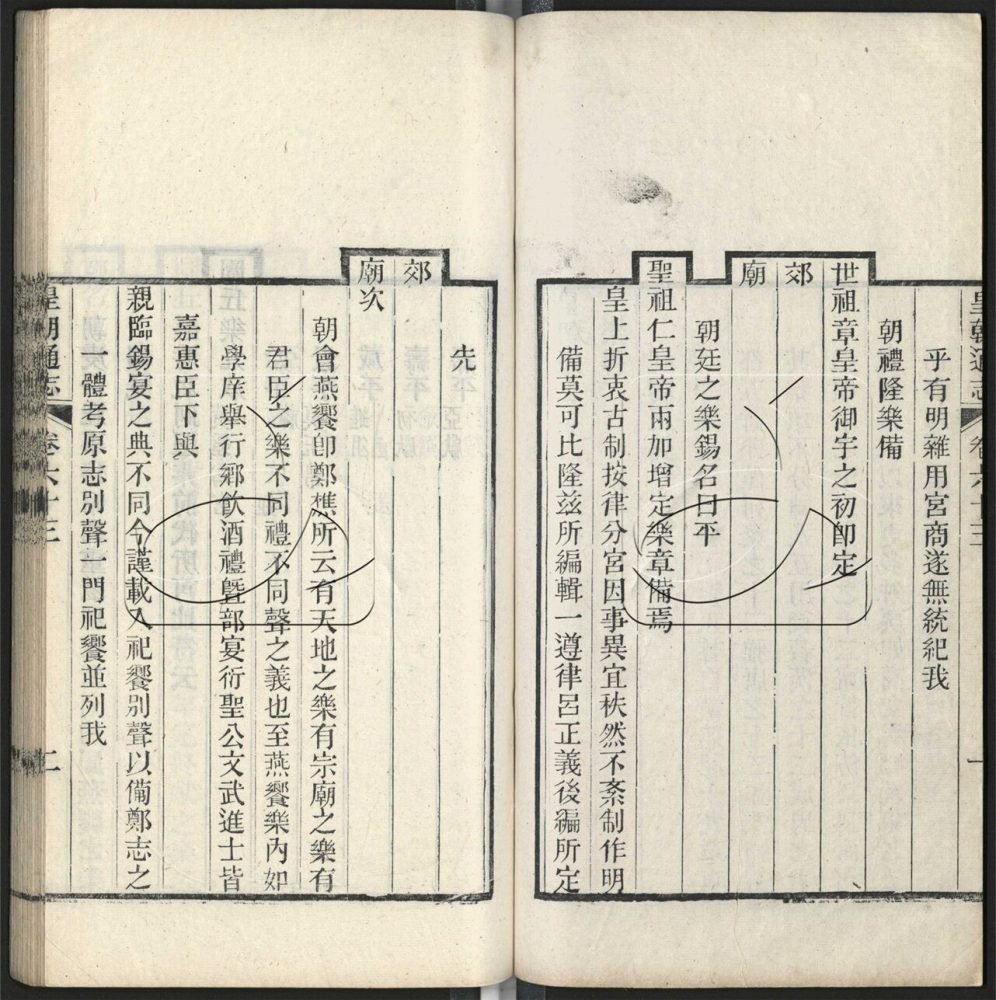 皇朝通志 卷六十三 一
乎有明雜用宮商遂無統紀我
朝禮隆樂備
世祖章皇帝御宇之初卽定
郊
廟
朝廷之樂錫名曰平
聖祖仁皇帝兩加增定樂章備焉
皇上折衷古制按律分宮因事異宜秩然不紊制作明
備莫可比隆茲所編輯一遵律呂正義後編所定
先
郊
廟次
朝會燕饗卽鄭樵所云有天地之樂有宗廟之樂有
君臣之樂不同禮不同聲之義也至燕饗樂內如
學庠舉行鄉飲酒禮曁部宴衍聖公文武進士皆
嘉惠臣下與
親臨錫宴之典不同今謹載入祀饗別聲以備鄭志之
一體考原志別聲一門祀饗並列我
皇朝通志 卷六十三 二